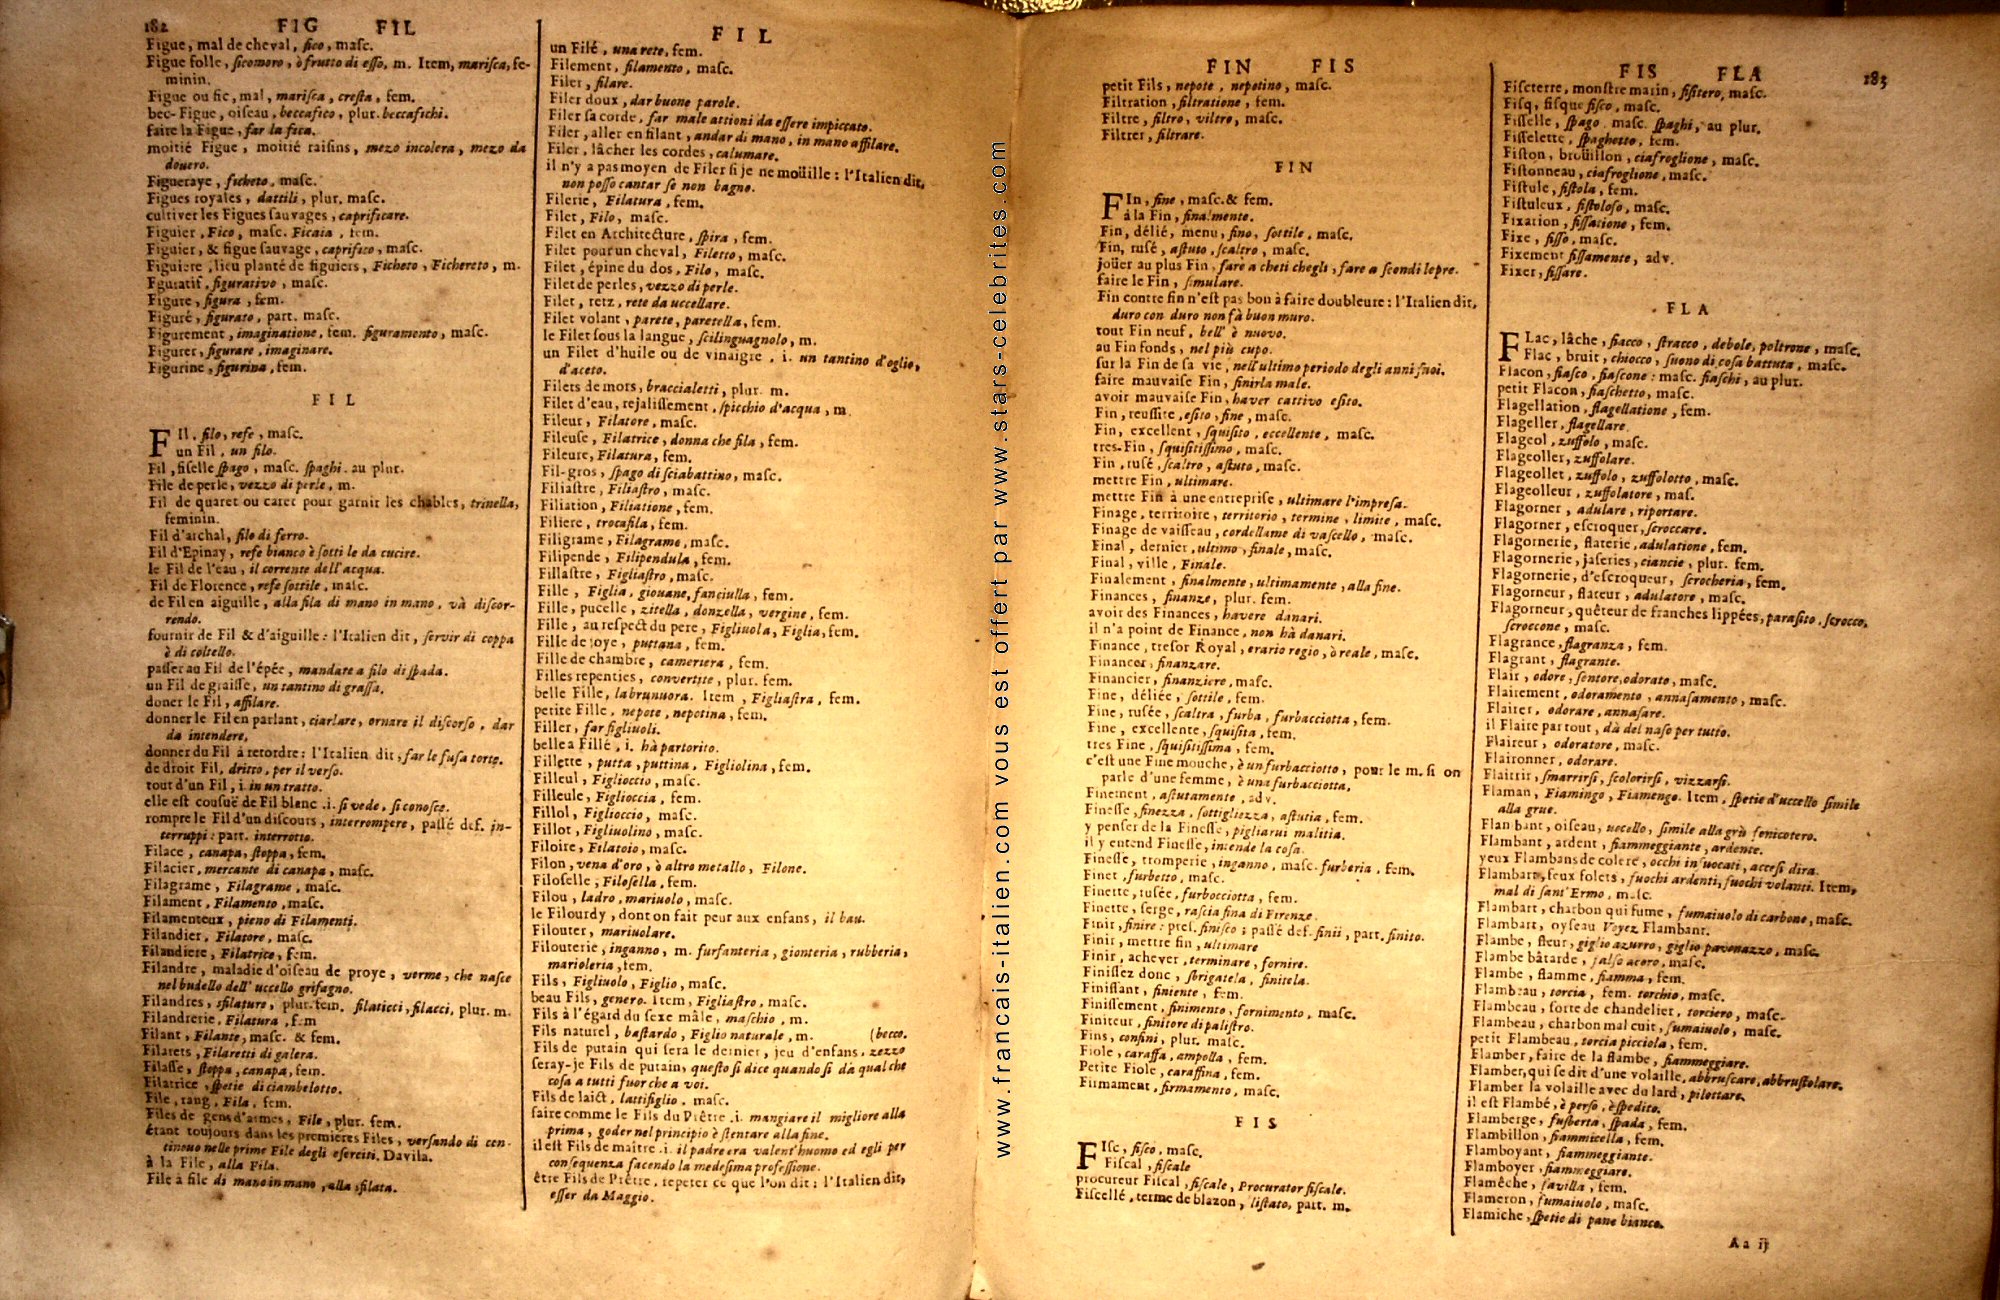 182 FIG FIL
Figue, mal de cheval, fico, masc.
Figue folle, sicomoro, ò frutto di esso, m. Item, marisca, fe-
minin.
Figue ou fic, mal, marisca, cresta, fem.
bec-Figue, oiseau, beccafico, plur. beccafichi.
faire la Figue, far la fica.
moitié Figue, moitié raisins, mezo incolera, mezo da
douero.
Figueraye, ficheto, masc.
Figues royales, dattili, plur. masc.
cultiver les Figues sauvages, caprificare.
Figuier, Fico, masc. Ficaia, fem.
Figuier, & figue sauvage, caprifico, masc.
Figuiere, lieu planté de figuiers, Ficheto, Fichereto, m.
Figuratif, figurativo, masc.
Figure, figura, fem.
Figuré, figurato, part. masc.
Figurement, imaginatione, fem. figuramento, masc.
Figurer, figurare, imaginare.
Figurine, figurina, fem.
FIL
FIl, filo, refe, masc.
un Fil, un filo.
Fil, fiselle spago, masc. spaghi, au plur.
File de perle, vezzo di perle, m.
Fil de quaret ou caret pour garnir les chables, trinella,
feminin.
Fil d'archal, filo di ferro.
Fil d'Epinay, refe bianco è sotti le da cucire.
le Fil de l'eau, il corrente dell'acqua.
Fil de Florence, refe sottile, masc.
de Fil en aiguille, alla fila di mano in mano, và discor-
rendo.
fournir de Fil & d'aiguille: l'Italien dit, servir di coppa
è di coltello.
passer au Fil de l'épée, mandare a filo di spada.
un Fil de graisse, un tantino di grassa.
doner le Fil, affilare.
donner le Fil en parlant, ciarlare, ornare il discorso, dar
da intendere,
donner du Fil à retordre: l'Italien dit, far le fusa torte.
de droit Fil, dritto, per il verso.
tout d'un Fil, i. in un tratto.
elle est cousuë de Fil blanc .i. si vede, si conosce.
rompre le Fil d'un discours, interrompere, passé def. in-
terruppi: part. interrotto.
Filace, canapa, stoppa, fem.
Filacier, mercante di canapa, masc.
Filagrame, Filagrame, masc.
Filament, Filamento, masc.
Filamenteux, pieno di Filamenti.
Filandier, Filatore, masc.
Filandiere, Filatrice, fem.
Filandre, maladie d'oiseau de proye, verme, che nasce
nel budello dell' uccello grifagno.
Filandres, sfilature, plur. fem. filaticci, filacci, plur. m.
Filandrerie, Filatura, fem
Filant, Filante, masc. & fem.
Filarets, Filaretti di galera.
Filasse, stoppa, canapa, fem.
Filatrice, spetie di ciambelotto.
File, rang, Fila, fem.
Files de gens d'armes, File, plur. fem.
étant toujours dans les premières Files, versando di con-
tinouo nelle prime File degli eserciti. Davila.
à la File, alla Fila.
File à file di mano in mano, alla sfilata.
FIL
un Filé, una rete, fem.
Filement, filamento, masc.
Filer, filare.
Filer doux, dar buone parole.
Filer sa corde, far male attioni da essere impiccato.
Filer, aller en filant, andar di mano, in mano affilare.
Filer, lâcher les cordes, calumare.
il n'y a pas moyen de Filer si je ne moüille: l'Italien dit,
non posso cantar se non bagno.
Filerie, Filatura, fem.
Filet, Filo, masc.
Filet en Architecture, spira, fem.
Filet pour un cheval, Filetto, masc.
Filet, épine du dos, Filo, masc.
Filet de perles, vezzo di perle.
Filet, retz, rete da uccellare.
Filet volant, parete, paretella, fem.
le Filet sous la langue, scilinguagnolo, m.
un Filet d'huile ou de vinaigre, i. un tantino d'oglio,
d'aceto.
Filets de mors, braccialetti, plur. m.
Filet d'eau, rejalissement, spicchio d'acqua, m.
Fileur, Filatore, masc.
Fileuse, Filatrice, donna che fila, fem.
Fileure, Filatura, fem.
Fil-gros, spago di sciabattino, masc.
Filiastre, Filiastro, masc.
Filiation, Filiatione, fem.
Filiere, trocafila, fem.
Filigrame, Filagrame, masc.
Filipende, Filipendula, fem.
Fillastre, Figliastro, masc.
Fille, Figlia, giouane, fanciulla, fem.
Fille, pucelle, zitella, donzella, vergine, fem.
Fille, au respect du pere, Figliuola, Figlia, fem.
Fille de joye, puttana, fem.
Fille de chambre, cameriera, fem.
Filles repenties, convertite, plur. fem.
belle Fille, la brunuora. Item, Figliastra, fem.
petite Fille, nepote, nepotina, fem.
Filler, far figliuoli.
belle a Fillé, i. hà partorito.
Fillette, putta, puttina, Figliolina, fem.
Filleul, Figlioccio, masc.
Filleule, Figlioccia, fem.
Fillol, Figlioccio, masc.
Fillot, Figliuolino, masc.
Filoire, Filatoio, masc.
Filon, vena d'oro, ò altro metallo, Filone.
Filoselle, Filosella, fem.
Filou, ladro, mariuolo, masc.
le Filourdy, dont on fait peur aux enfans, il bau.
Filouter, mariuolare.
Filouterie, inganno, m. furfanteria, gionteria, rubberia,
marioleria, fem.
Fils, Figliuolo, Figlio, masc.
beau Fils, genero. Item, Figliastro, masc.
Fils à l'égard du sexe mâle, maschio, m.
Fils naturel, bastardo, Figlio naturale, m. (becco.
Fils de putain qui sera le dernier, jeu d'enfans, zezzo
seray-je Fils de putain, questo si dice quando si da qualche
cosa a tutti fuor che a voi.
Fils de laict, lattifiglio, masc.
faire comme le Fils du Prêtre .i. mangiare il migliore alla
prima, goder nel principio è stentare alla fine.
il est Fils de maître .i. il padre era valent'huomo ed egli per
consequenza facendo la medesima professione.
être Fils de Prêtre, repeter ce que l'on dit: l'Italien dit,
esser da Maggio.
www.francais-italien.com vous est offert par www.stars-celebrites.com
FIN FIS
petit Fils, nepote, nepotino, masc.
Filtration, filtratione, fem.
Filtre, filtro, viltro, masc.
Filtrer, filtrare.
FIN
FIn, fine, masc. & fem.
à la Fin, finalmente.
Fin, délié, menu, fino, sottile, masc.
Fin, rusé, astuto, scaltro, masc.
joüer au plus Fin, fare a cheti chegli, fare a scondi lepre.
faire le Fin, simulare.
Fin contre fin n'est pas bon à faire doubleure: l'Italien dit,
duro con duro non fà buon muro.
tout Fin neuf, bell' è nuovo.
au Fin fonds, nel più cupo.
sur la Fin de sa vie, nell'ultimo periodo degli anni suoi.
faire mauvaise Fin, finirla male.
avoir mauvaise Fin, haver cattivo esito.
Fin, reussite, esito, fine, masc.
Fin, excellent, squisito, eccellente, masc.
tres-Fin, squisitissimo, masc.
Fin, rusé, scaltro, astuto, masc.
mettre Fin, ultimare.
mettre Fin à une entreprise, ultimare l'impresa.
Finage, territoire, territorio, termine, limite, masc.
Finage de vaisseau, cordellame di vascello, masc.
Final, dernier, ultimo, finale, masc.
Final, ville, Finale.
Finalement, finalmente, ultimamente, alla fine.
Finances, finanze, plur. fem.
avoir des Finances, havere danari.
il n'a point de Finance, non hà danari.
Finance, tresor Royal, erario regio, ò reale, masc.
Financer, finanzare.
Financier, finanziere, masc.
Fine, déliée, sottile, fem.
Fine, rusée, scaltra, furba, furbacciotta, fem.
Fine, excellente, squisita, fem.
tres Fine, squisitissima, fem.
c'est une Fine mouche, è un furbacciotto, pour le m. si on
parle d'une femme, è una furbacciotta.
Finement, astutamente, adv.
Finesse, finezza, sottigliezza, astutia, fem.
y penser de la Finesse, pigliarui malitia.
il y entend Finesse, intende la cosa.
Finesse, tromperie, inganno, masc. furberia, fem.
Finet, furbetto, masc.
Finette, rusée, furbocciotta, fem.
Finette, serge, rascia fina di Firenze.
Finir, finire: pres. finisco; passé def. finii, part. finito.
Finir, mettre fin, ultimare
Finir, achever, terminare, fornire.
Finissez donc, sbrigatela, finitela.
Finissant, finiente, fem.
Finissement, finimento, fornimento, masc.
Finiteur, finitore di palistro.
Fins, confini, plur. masc.
Fiole, caraffa, ampolla, fem.
Petite Fiole, caraffina, fem.
Firmament, firmamento, masc.
FIS
FIsc, fisco, masc.
Fiscal, fiscale
procureur Fiscal, fiscale, Procurator fiscale.
Fiscellé, terme de blazon, listato, part. m.
FIS FLA 183
Fisceterre, monstre marin, fisitero, masc.
Fisq, fisque fisco, masc.
Fisselle, spago, masc. spaghi, au plur.
Fisselette, spaghetto, fem.
Fiston, broüillon, ciafroglione, masc.
Fistonneau, ciafroglione, masc.
Fistule, fistola, fem.
Fistuleux, fistoloso, masc.
Fixation, fissatione, fem.
Fixe, fisso, masc.
Fixement fissamente, adv.
Fixer, fissare.
FLA
FLac, lâche, fiacco, stracco, debole, poltrone, masc.
Flac, bruit, chiocco, suono di cosa battuta, masc.
Flacon, fiasco, fiascone: masc. fiaschi, au plur.
petit Flacon, fiaschetto, masc.
Flagellation, flagellatione, fem.
Flageller, flagellare.
Flageol, zuffolo, masc.
Flageoller, zuffolare.
Flageollet, zuffolo, zuffolotto, masc.
Flageolleur, zuffolatore, mas.
Flagorner, adulare, riportare.
Flagorner, escroquer, scroccare.
Flagornerie, flaterie, adulatione, fem.
Flagornerie, jaseries, ciancie, plur. fem.
Flagornerie, d'escroqueur, scrocheria, fem.
Flagorneur, flateur, adulatore, masc.
Flagorneur, quêteur de franches lippées, parasito, scrocco,
scroccone, masc.
Flagrance, flagranza, fem.
Flagrant, flagrante.
Flair, odore, sentore, odorato, masc.
Flairement, odoramento, annasamento, masc.
Flairer, odorare, annasare.
il Flaire par tout, dà del naso per tutto.
Flaireur, odoratore, masc.
Flaironner, odorare.
Flaitrir, smarrirsi, scolorirsi, vizzarsi.
Flaman, Fiamingo, Fiamengo. Item, spetie d'uccello simile
alla grue.
Flambant, oiseau, uccello, simile alla grù fenicotero.
Flambant, ardent, fiammeggiante, ardente.
yeux Flambans de colere, occhi infuocati, accesi dira.
Flambars, feux folets, fuochi ardenti, fuochi volanti. Item,
mal di sant' Ermo, masc.
Flambart, charbon qui fume, fumaiuolo di carbone, masc.
Flambart, oyseau Voyez Flambant.
Flambe, fleur, giglio azurro, giglio pavonazzo, masc.
Flambe bâtarde, falso acoro, masc.
Flambe, flamme, fiamma, fem.
Flambeau, torcia, fem. torchio, masc.
Flambeau, sorte de chandelier, torciero, masc.
Flambeau, charbon mal cuit, fumaiuolo, masc.
petit Flambeau, torcia picciola, fem.
Flamber, faire de la flambe, fiammeggiare.
Flamber, qui se dit d'une volaille, abbruscare, abbrustolare.
Flamber la volaille avec du lard, pilottare.
il est Flambé, è perso, è spedito.
Flamberge, fusberta, spada, fem.
Flambillon, fiammicella, fem.
Flamboyant, fiammeggiante.
Flamboyer, fiammeggiare.
Flamêche, favilla, fem.
Flameron, fumaiuolo, masc.
Flamiche, spetie di pane bianco.
Aa ij